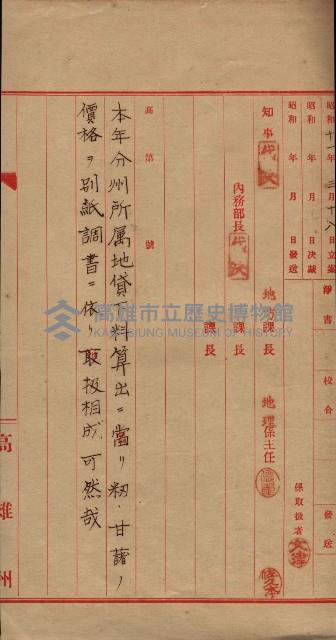 昭和十一年三月十八日立案
昭和 年 月 日決裁
昭和 年 月 日發送
淨書
校合
發送
知事
代決
內務部長
代決
地 課長
課長
課長
地理係主任
係取扱者
高第 號
本年分州所属地貸下料算出ニ當リ籾、甘藷ノ
價格ヲ別紙調書ニ依リ取扱相成可然哉
高雄州
高雄市立歷史博物館
KAOHSIUNG MUSEUM OF HISTORY